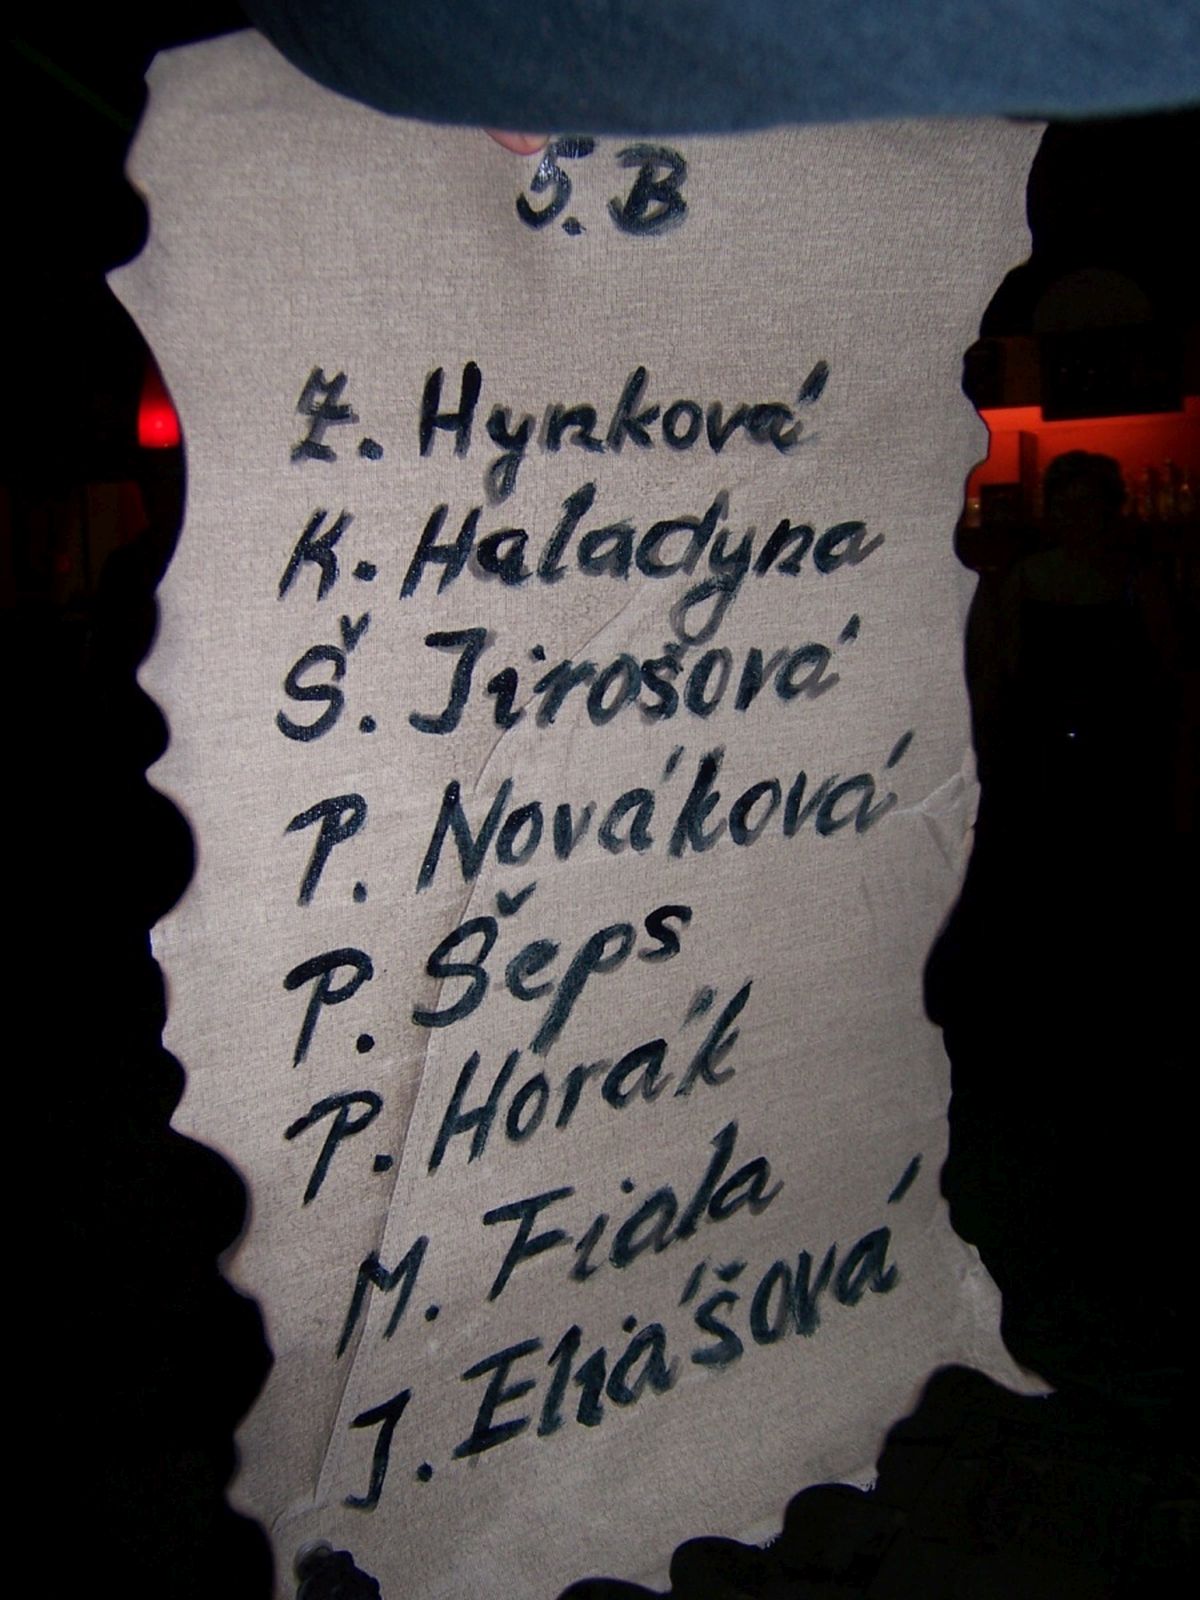 5.B
Z. Hynková
K. Haladyna
Š. Jirošová
P. Nováková
P. Šeps
P. Horák
M. Fiala
J. Eliášová